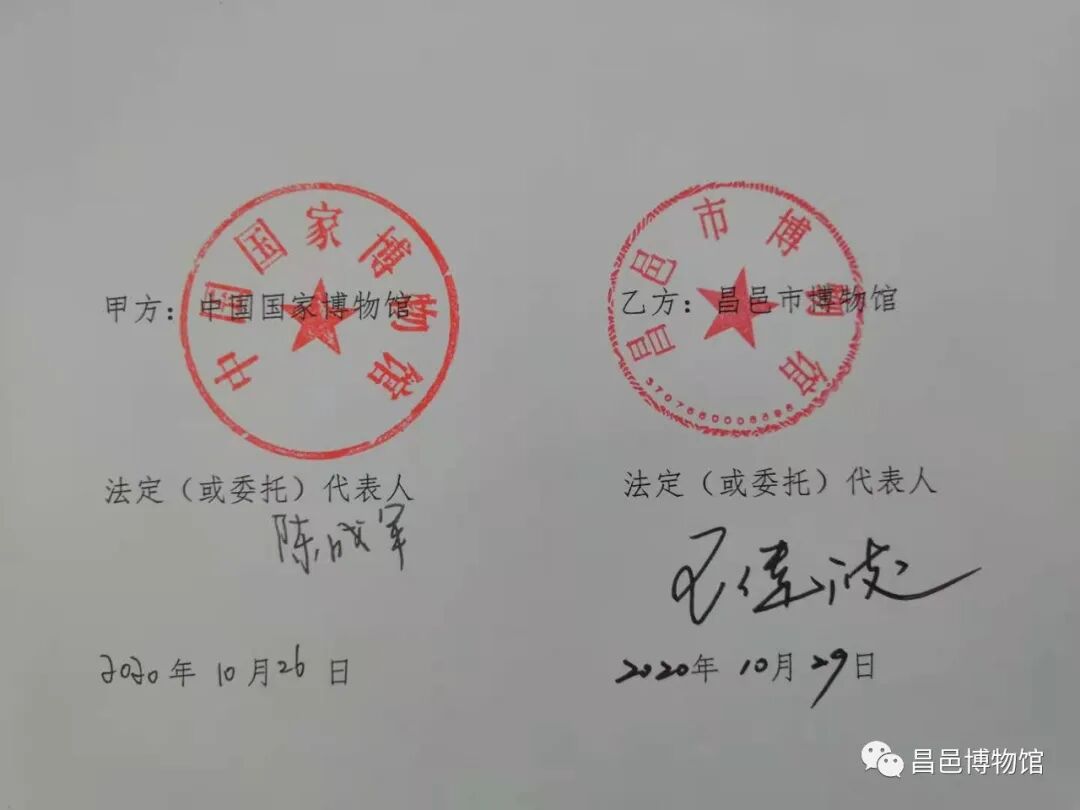 中国国家博物馆
甲方：中国国家博物馆
法定（或委托）代表人
陈成军
2020年10月26日
昌邑市博物馆
乙方：昌邑市博物馆
法定（或委托）代表人
王伟波
2020年10月29日
昌邑博物馆